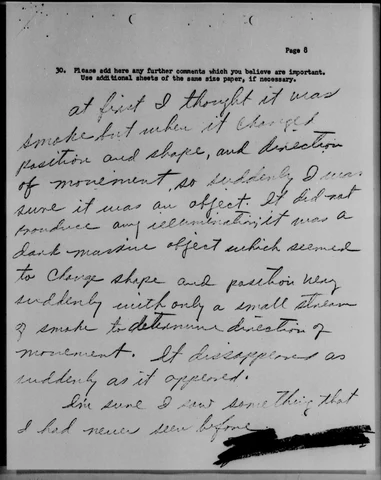 Page 8
30. Please add here any further comments which you believe are important.
Use additional sheets of the same size paper, if necessary.
at first I thought it was
smoke but when it changed
position and shape, and direction
of movement, so suddenly I was
sure it was an object. It did not
produce any illumination; it was a
dark massive object which seemed
to change shape and position very
suddenly with only a small stream
of smoke to determine direction of
movement. It dissappeared as
suddenly as it appered.
I'm sure I saw something that
I had never seen before